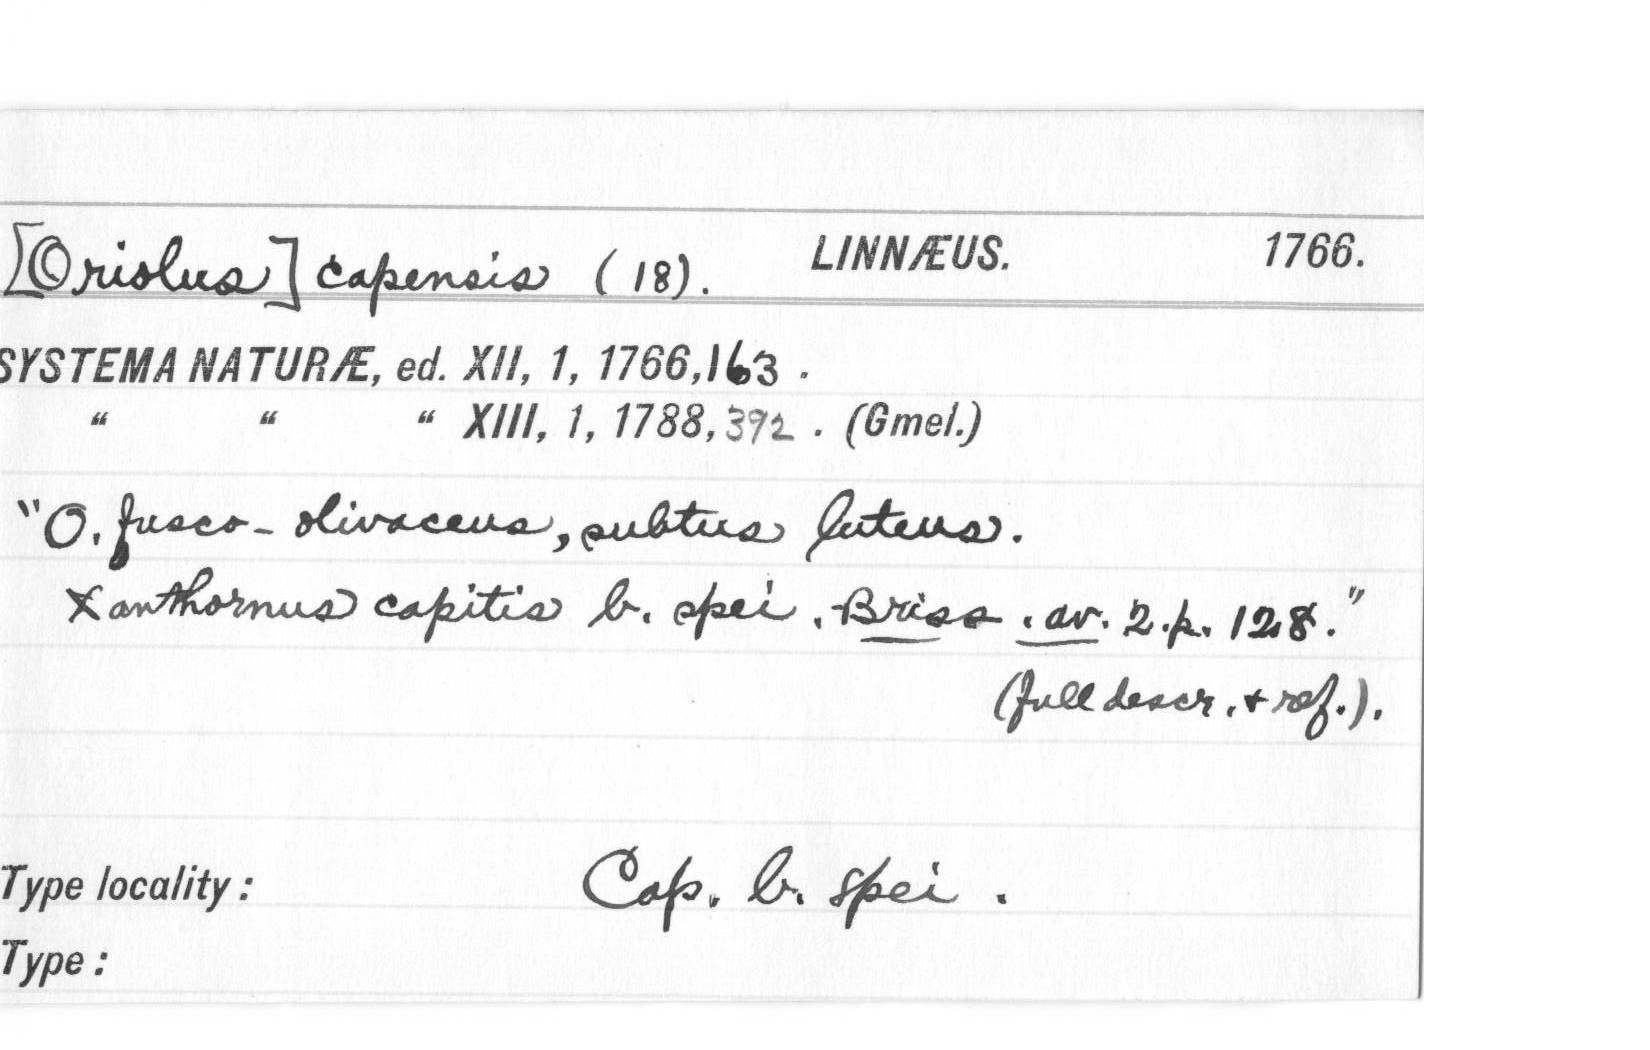 [Oriolus] capensis (18). LINNÆUS. 1766.
SYSTEMA NATURÆ, ed. XII, 1, 1766, 163.
“ “ “ XIII, 1, 1788, 392. (Gmel.)
"O. fusco-olivaceus, subtus luteus.
Xanthornus capitis b. spei. Briss. av. 2. p. 128."
(full descr. + ref.).
Type locality: Cap. b. spei.
Type: